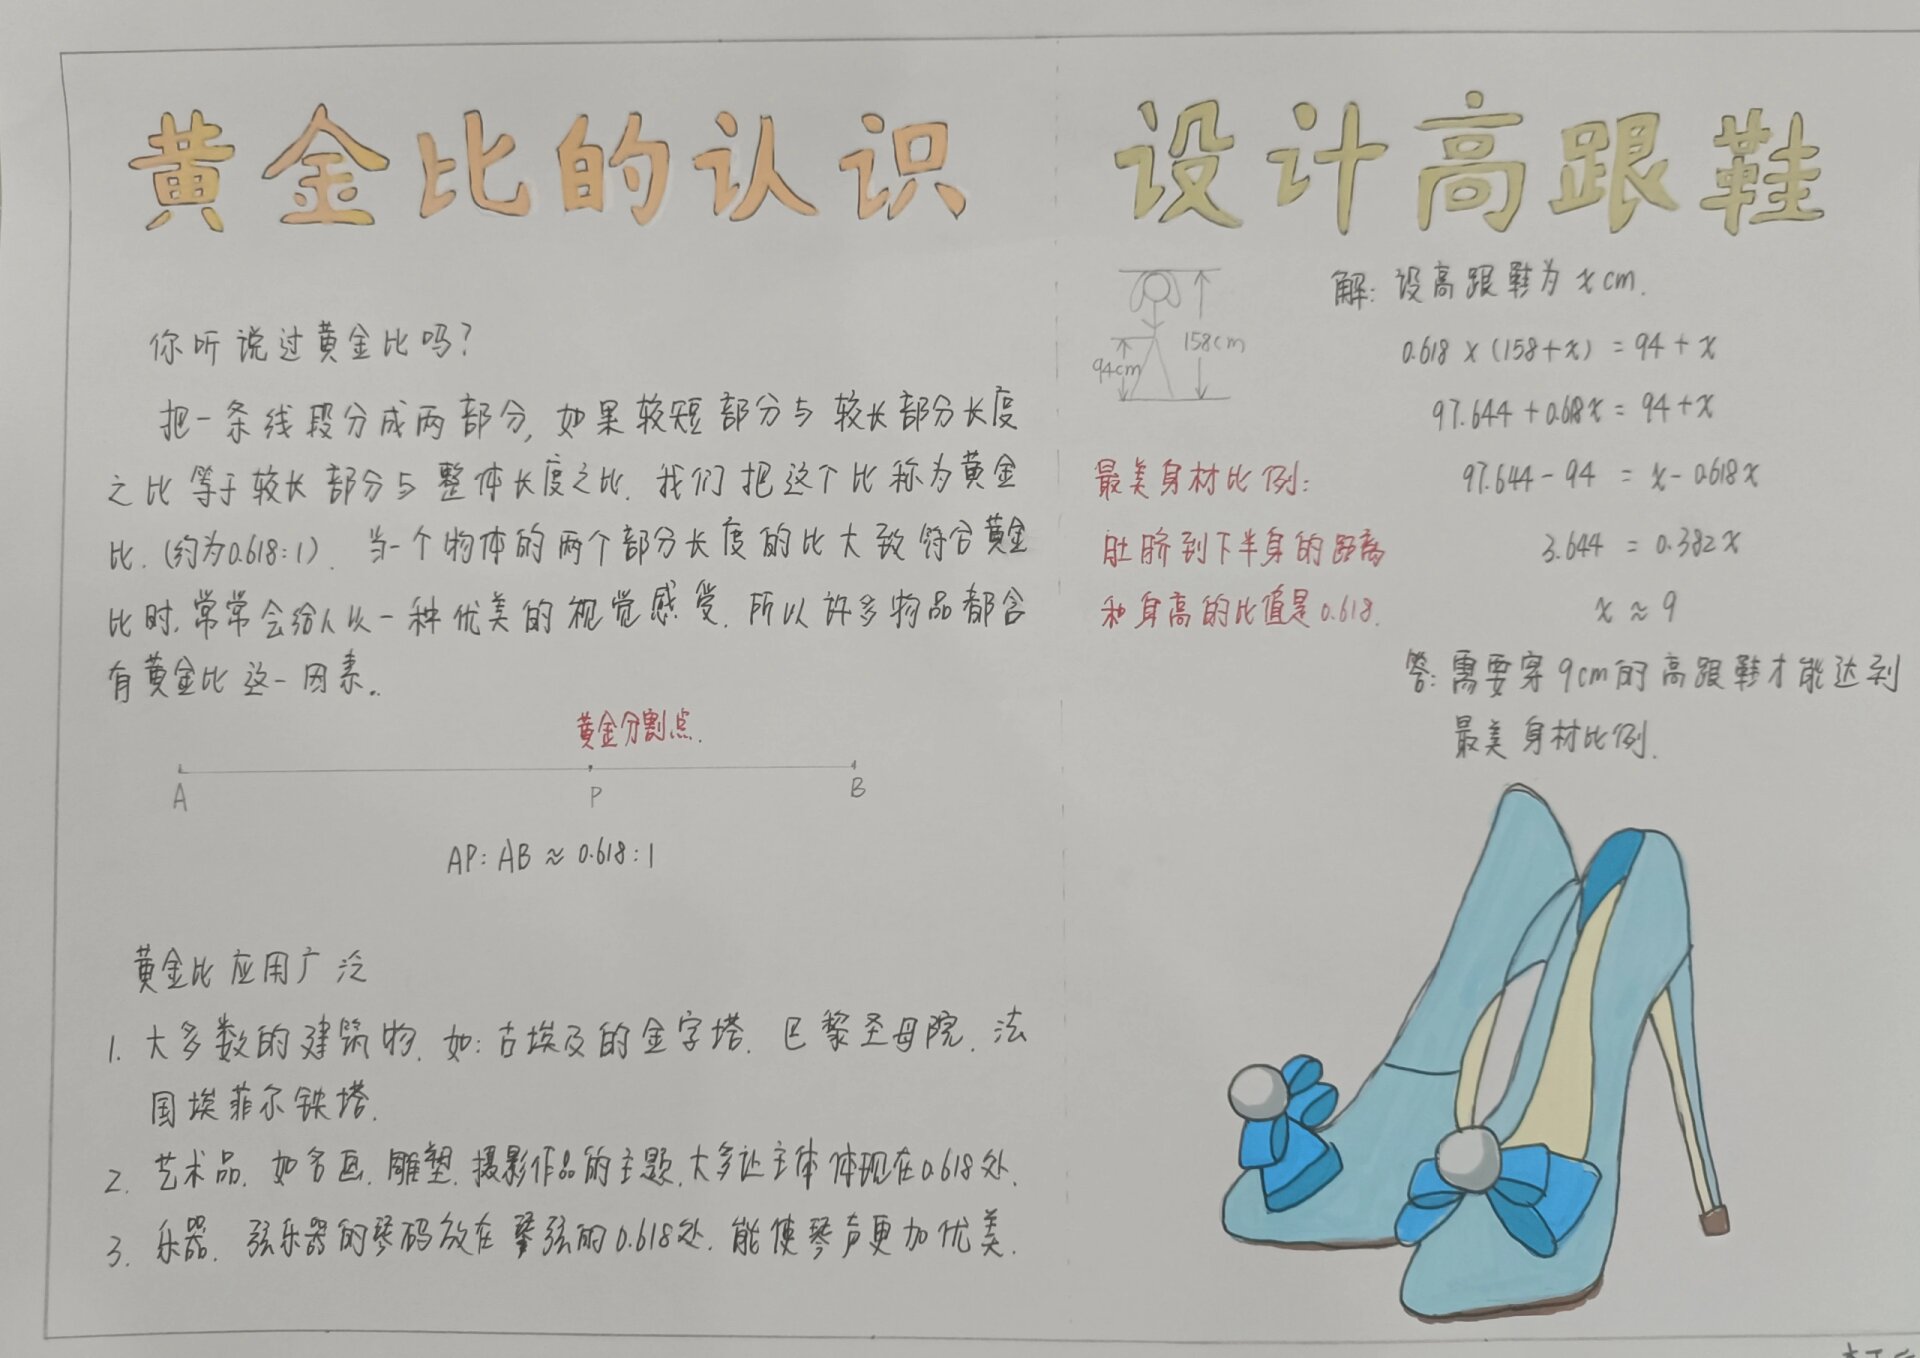 黄金比的认识
你听说过黄金比吗?
把一条线段分成两部分,如果较短部分与较长部分长度
之比等于较长部分与整体长度之比.我们把这个比称为黄金
比.(约为0.618:1).当一个物体的两个部分长度的比大致符合黄金
比时,常常会给人以一种优美的视觉感受.所以许多物品都含
有黄金比这一因素..
黄金分割点.
A P B
AP:AB≈0.618:1
黄金比应用广泛
1. 大多数的建筑物.如:古埃及的金字塔.巴黎圣母院.法
国埃菲尔铁塔.
2. 艺术品.如名画.雕塑.摄影作品的主题.大多让主体体现在0.618处.
3. 乐器.弦乐器的琴码放在琴弦的0.618处.能使琴声更加优美.
设计高跟鞋
158cm
94cm
解:设高跟鞋为xcm.
0.618×(158+x)=94+x
97.644+0.618x=94+x
97.644-94=x-0.618x
3.644=0.382x
x≈9
答:需要穿9cm的高跟鞋才能达到
最美身材比例.
最美身材比例:
肚脐到下半身的距离
和身高的比值是0.618.